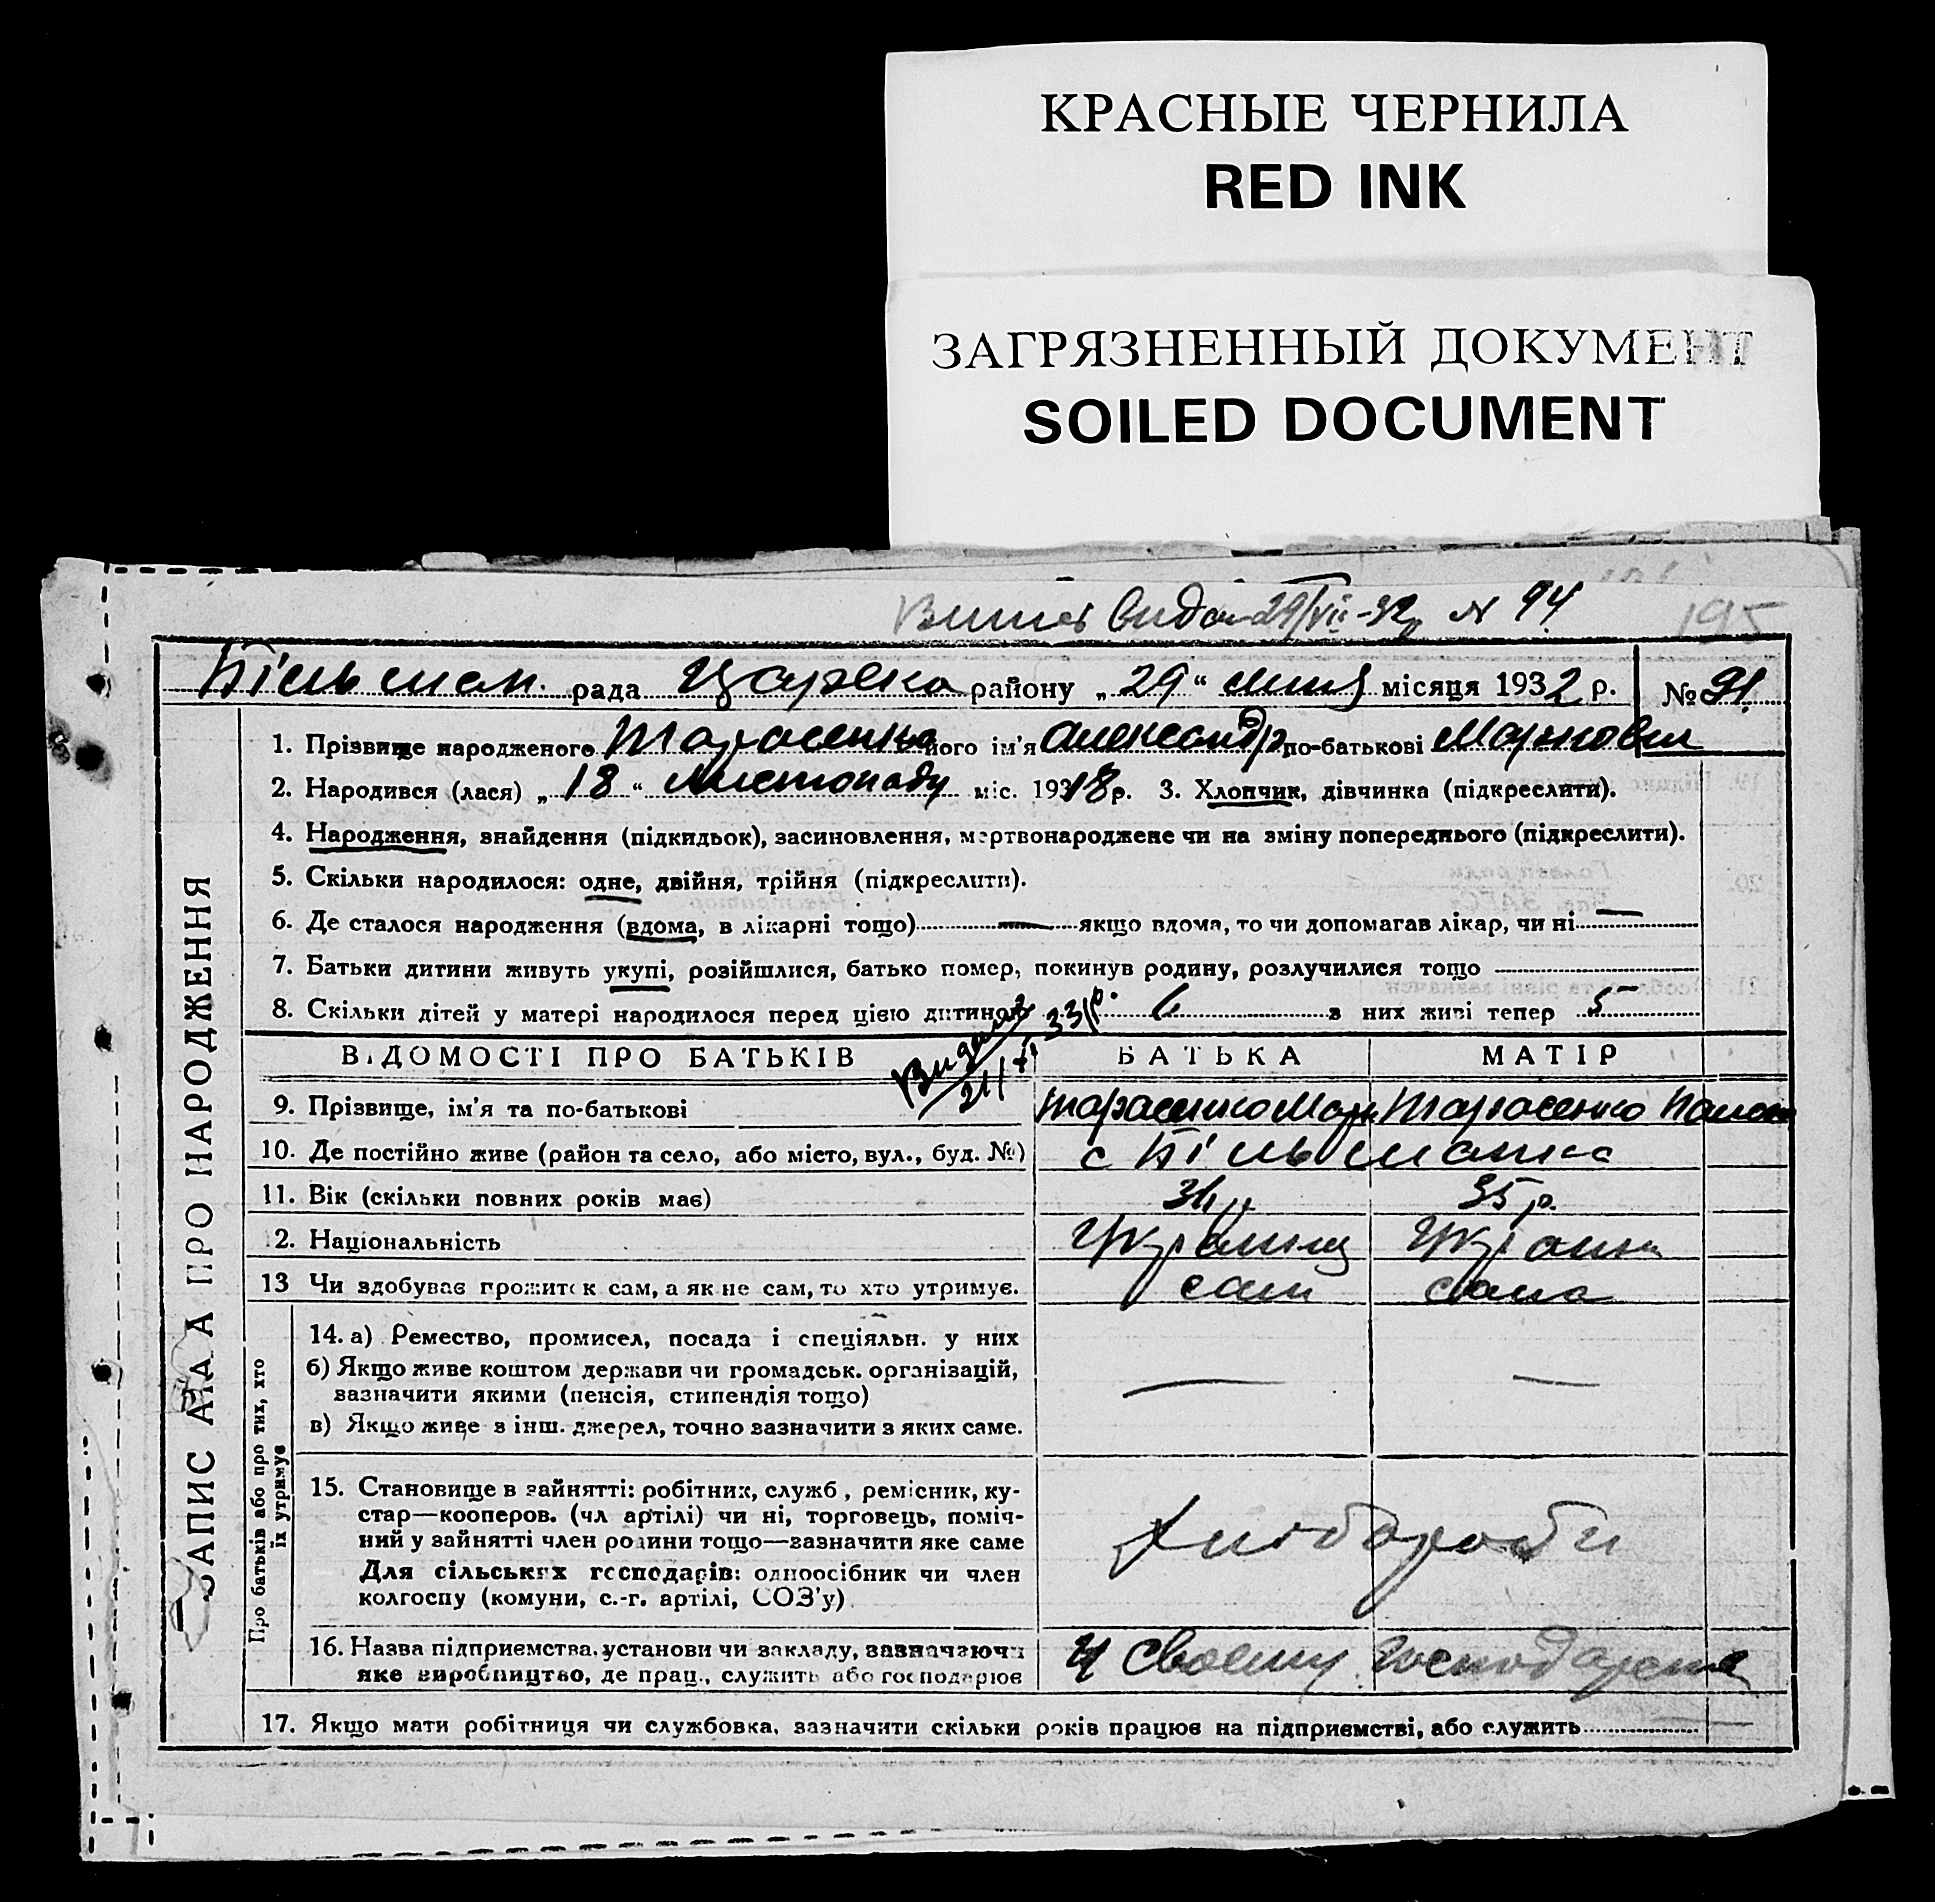 КРАСНЫЕ ЧЕРНИЛА
RED INK
ЗАГРЯЗНЕННЫЙ ДОКУМЕНТ
SOILED DOCUMENT
29/VII-32р № 94
195
рада район у „29“ місяця 1932 р. № 91.
1. Прізвище народженого Тарасенко його ім'я Александр по-батькові Маркович
2. Народився (лася) „18“ Листопаду міс. 1918 р. 3. Хлопчик, дівчинка (підкреслити).
4. Народження, знайдення (підкидьок), засиновлення, мертвонароджене чи на зміну попереднього (підкреслити).
5. Скільки народилося: одне, двійня, трійня (підкреслити).
6. Де сталося народження (вдома, в лікарні тощо) — якщо вдома, то чи допомагав лікар, чи ні —
7. Батьки дитини живуть укупі, розійшлися, батько помер, покинув родину, розлучилися тощо
8. Скільки дітей у матері народилося перед цією дитиною 6 з них живі тепер 5
ВІДОМОСТІ ПРО БАТЬКІВ БАТЬКА МАТІР
9. Прізвище, ім'я та по-батькові Тарасенко Марк Тарасенко
10. Де постійно живе (район та село, або місто, вул., буд. №) с
11. Вік (скільки повних років має) 35 р.
12. Національність Українец Українка
13 Чи здобуває прожиток сам, а як не сам, то хто утримує. сам сама
14. а) Ремество, промисел, посада і спеціяльн. у них
б) Якщо живе коштом держави чи громадськ. організацій,
зазначити якими (пенсія, стипендія тощо) — —
в) Якщо живе з інш. джерел, точно зазначити з яких саме.
15. Становище в зайнятті: робітник, служб., ремісник, ку-
стар—кооперов. (чл артілі) чи ні, торговець, поміч-
ний у зайнятті член родини тощо—зазначити яке саме
Для сільських господарів: одноосібник чи член
колгоспу (комуни, с.-г. артілі, СОЗ'у)
Хлібороби
16. Назва підприємства, установи чи закладу, зазначаючи
яке виробництво, де прац., служить або господарює
У своему
17. Якщо мати робітниця чи службовка, зазначити скільки років працює на підприємстві, або служить
ЗАПИС АКТА ПРО НАРОДЖЕННЯ
Про батьків або про тих, хто
їх утримує